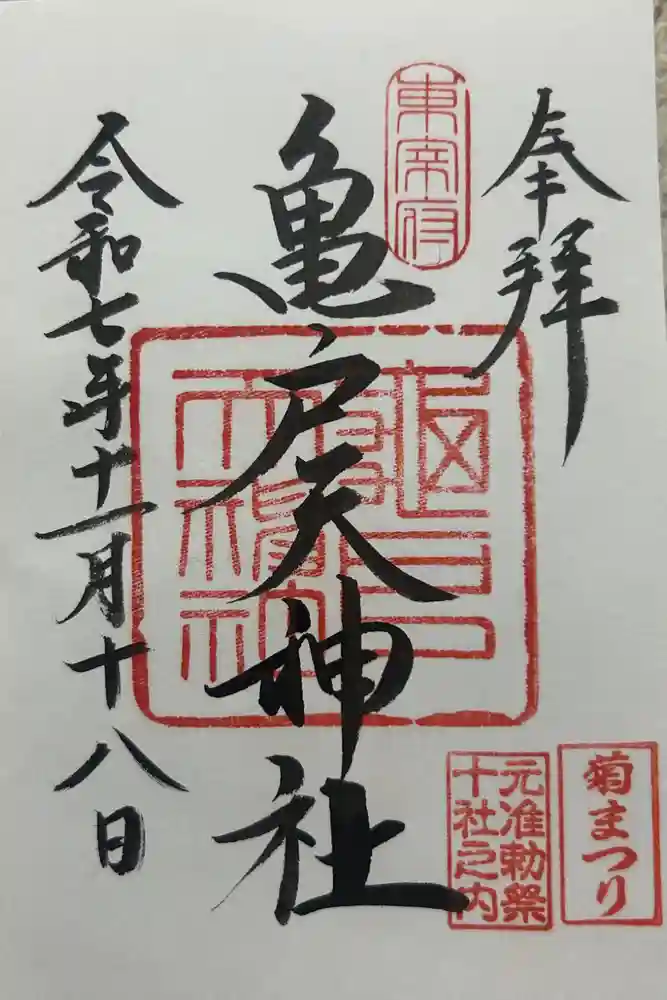 奉拝
東宰府
亀戸天神社
令和七年十一月十八日
菊まつり
元准勅祭
十社之内